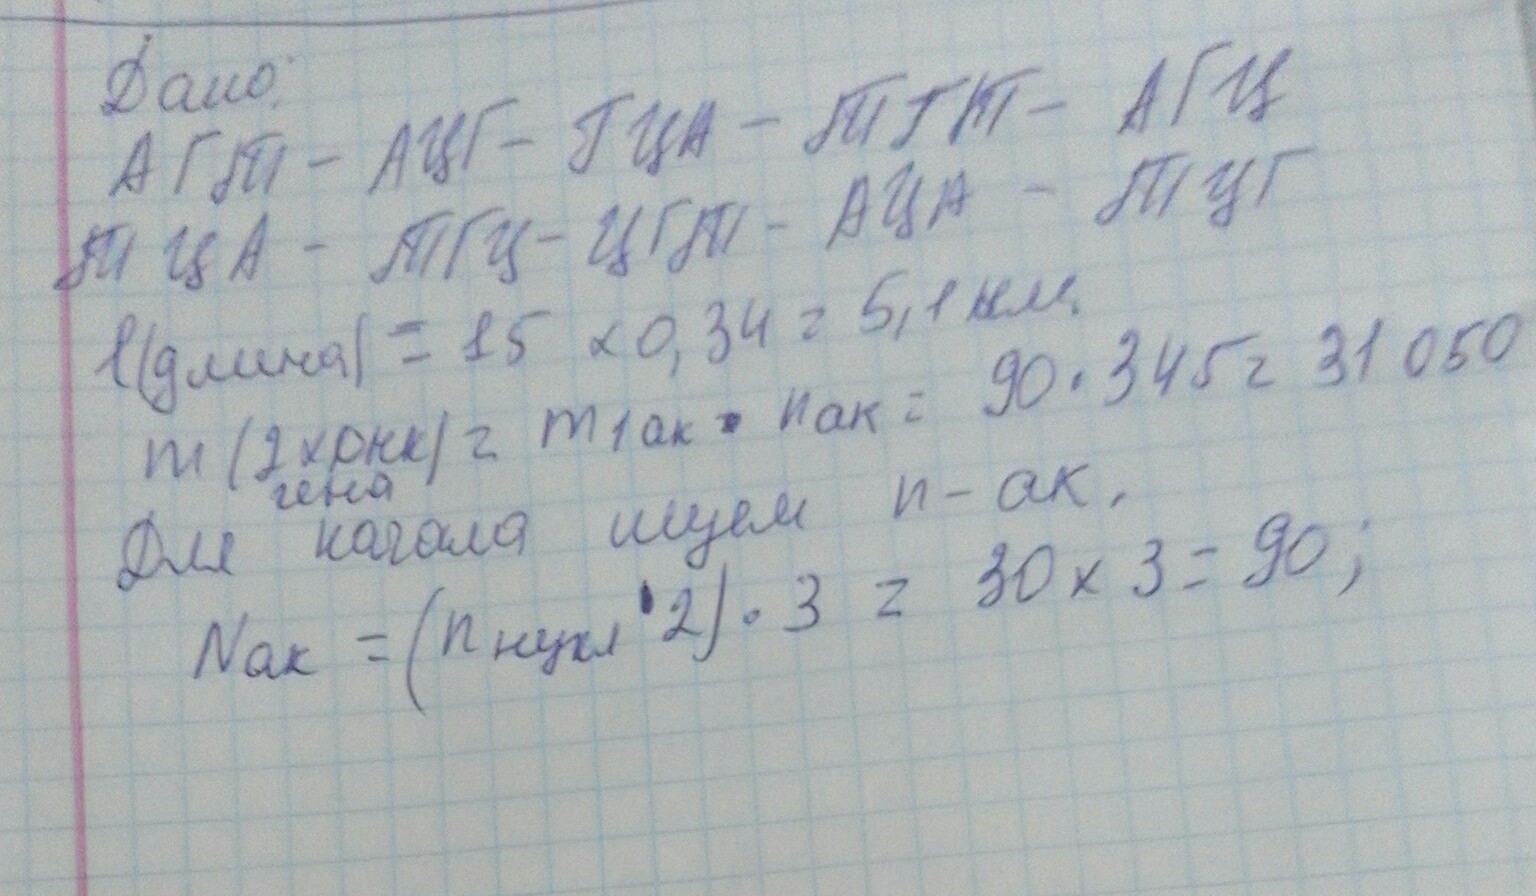 Дано:
АГТ - АЦГ - ГЦА - ТГТ - АГЦ
ТЦА - ТГЦ - ЦГТ - АЦА - ТЦГ
l(длина) = 15 × 0,34 = 5,1 нм.
m (2х днк) = m1ак • nак = 90 • 345 = 31 050
гена
Для начала ищем n - ак.
Nак = (nнукл • 2) • 3 = 30 × 3 = 90;